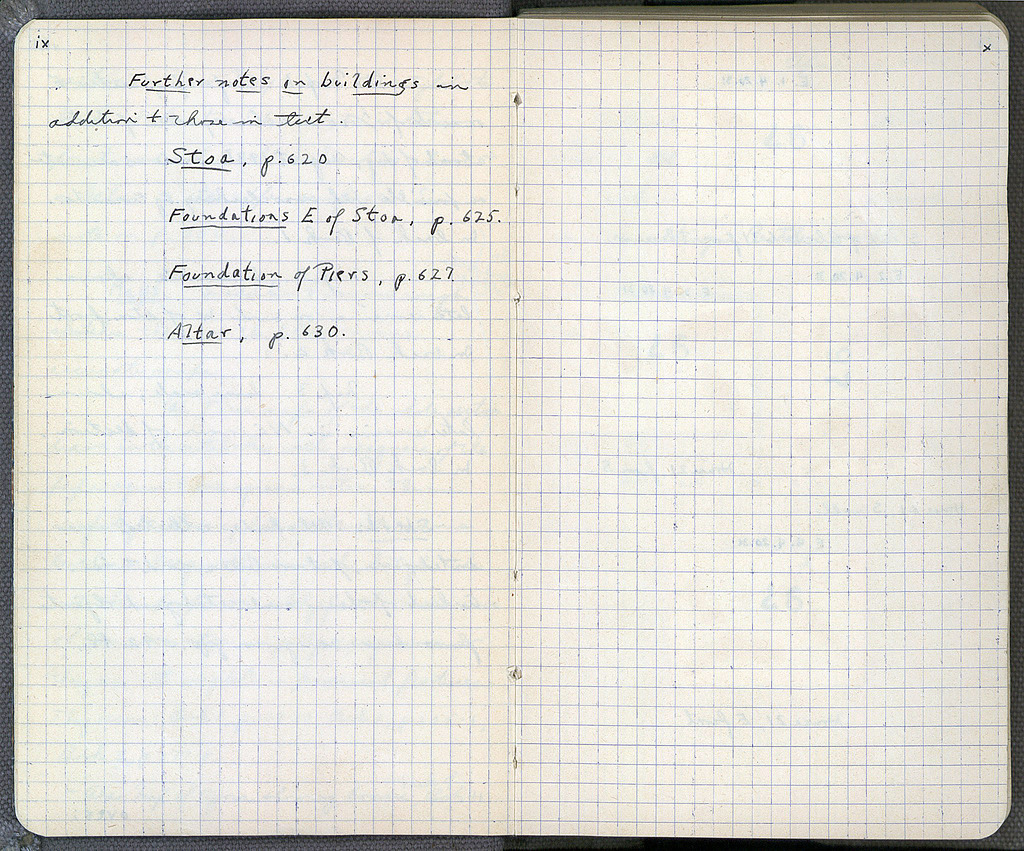 ix
Further notes on buildings in
addition to those in text.
Stoa, p. 620
Foundations E of Stoa, p. 625.
Foundation of Piers, p. 627.
Altar, p. 630.
x